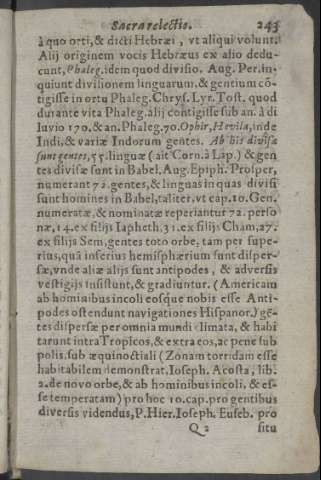 Sacra relectio. 243
à quo orti, & dicti Hebræi, vt aliqui volunt.
Alij originem vocis Hebræus ex alio dedu-
cunt, Phaleg. idem quod divisio. Aug. Per. in-
quiunt divisionem linguarum, & gentium cō-
tigisse in ortu Phaleg. Chrys. Lyr. Tost. quod
durante vita Phaleg. alij contigisse sub an. à di
luvio 170. & an. Phaleg. 70. Ophir, Hevila, inde
Indi, & variæ Indorum gentes. Ab his divisæ
sunt gentes, 55. linguæ (ait Corn. à Lap.) & gen
tes divisæ sunt in Babel. Aug. Epiph. Prosper,
numerant 72. gentes, & linguas in quas divisi
sunt homines in Babel, taliter. vt cap. 10. Gen.
numeratæ, & nominatæ reperiantur 72. perso
næ, 14. ex filijs Iapheth. 31. ex filijs Cham, 27.
ex filijs Sem, gentes toto orbe, tam per supe-
rius, quā inferius hemisphærium sunt disper-
sæ, vnde aliæ alijs sunt antipodes, & adversis
vestigijs insistunt, & gradiuntur. (Americam
ab hominibus incoli eosque nobis esse Anti-
podes ostendunt navigationes Hispanor.) gē-
tes dispersæ per omnia mundi climata, & habi
tarunt intra Tropicos, & extra eos, ac pene sub
polis. sub æquinoctiali (Zonam torridam esse
habitabilem demonstrat. Ioseph. Acosta, lib.
2. de novo orbe, & ab hominibus incoli, & es-
se temperatam) pro hoc 10. cap. pro gentibus
diversis videndus, P. Hier. Ioseph. Euseb. pro
Q 2 situ